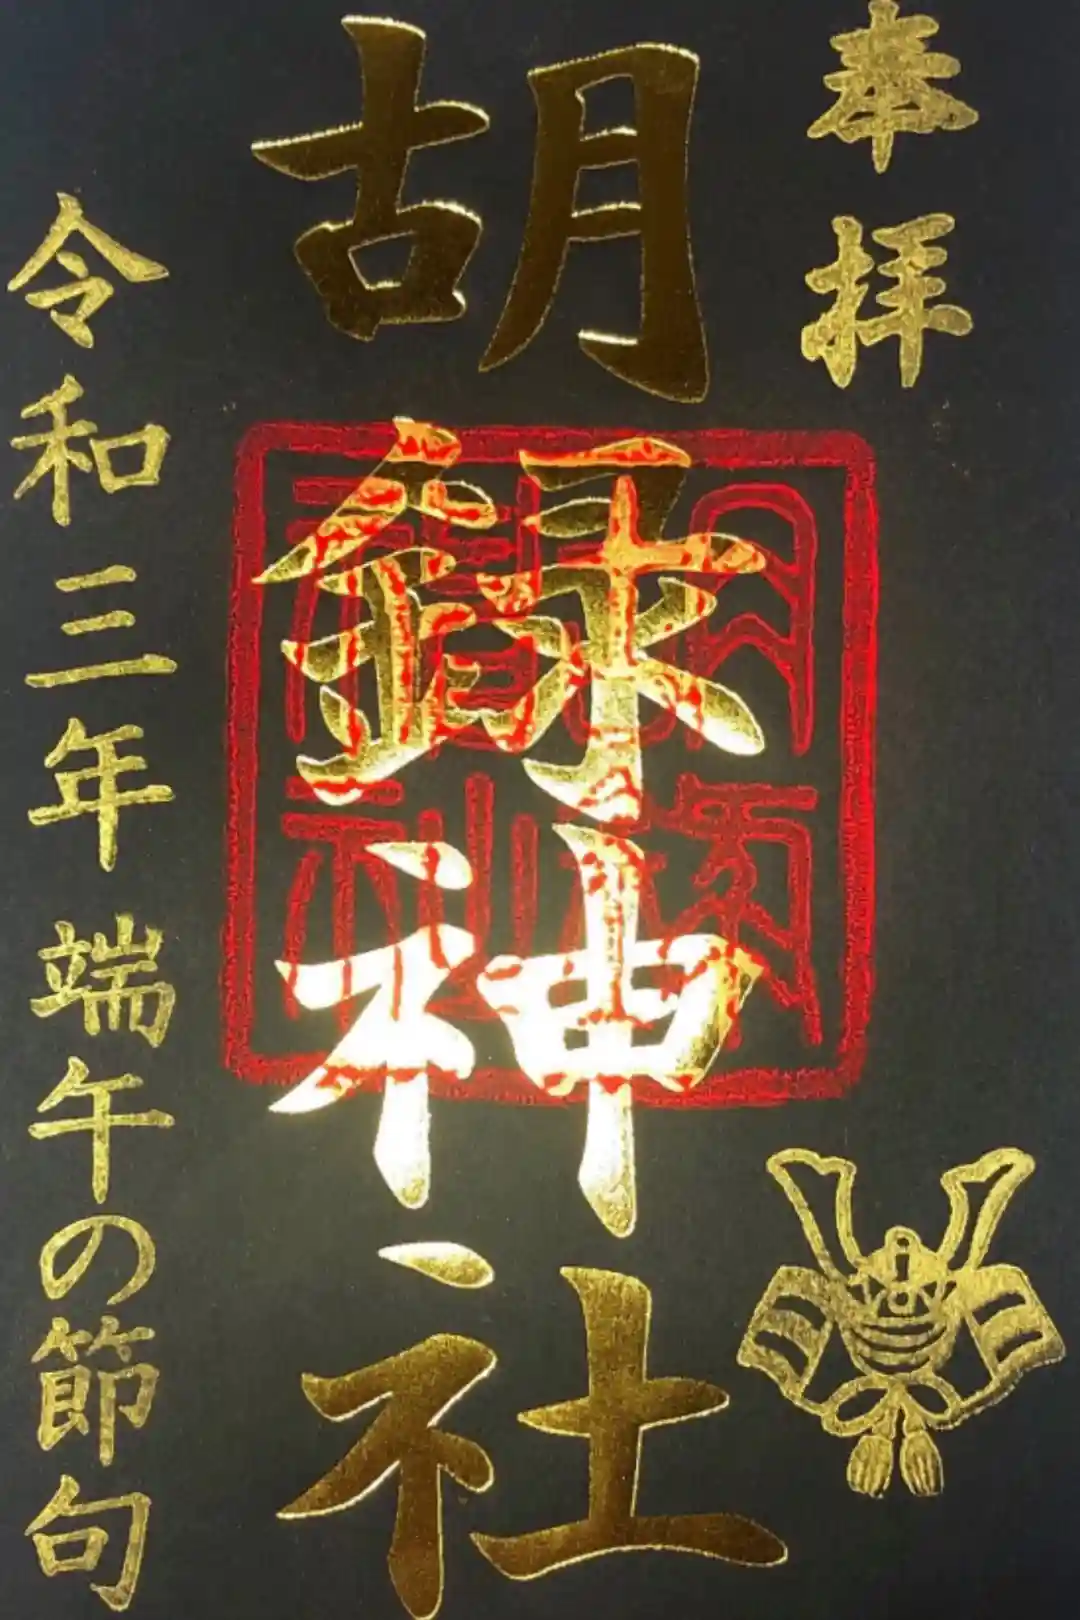 奉拝
胡録神社
令和三年 端午の節句